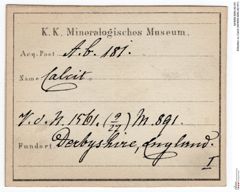 K. K. Mineralogisches Museum.
Acq. Post A. b. 181.
Name Calcit
V. d. N. 1561. (9/27) M. 891.
Fundort Derbyshire, England.
I